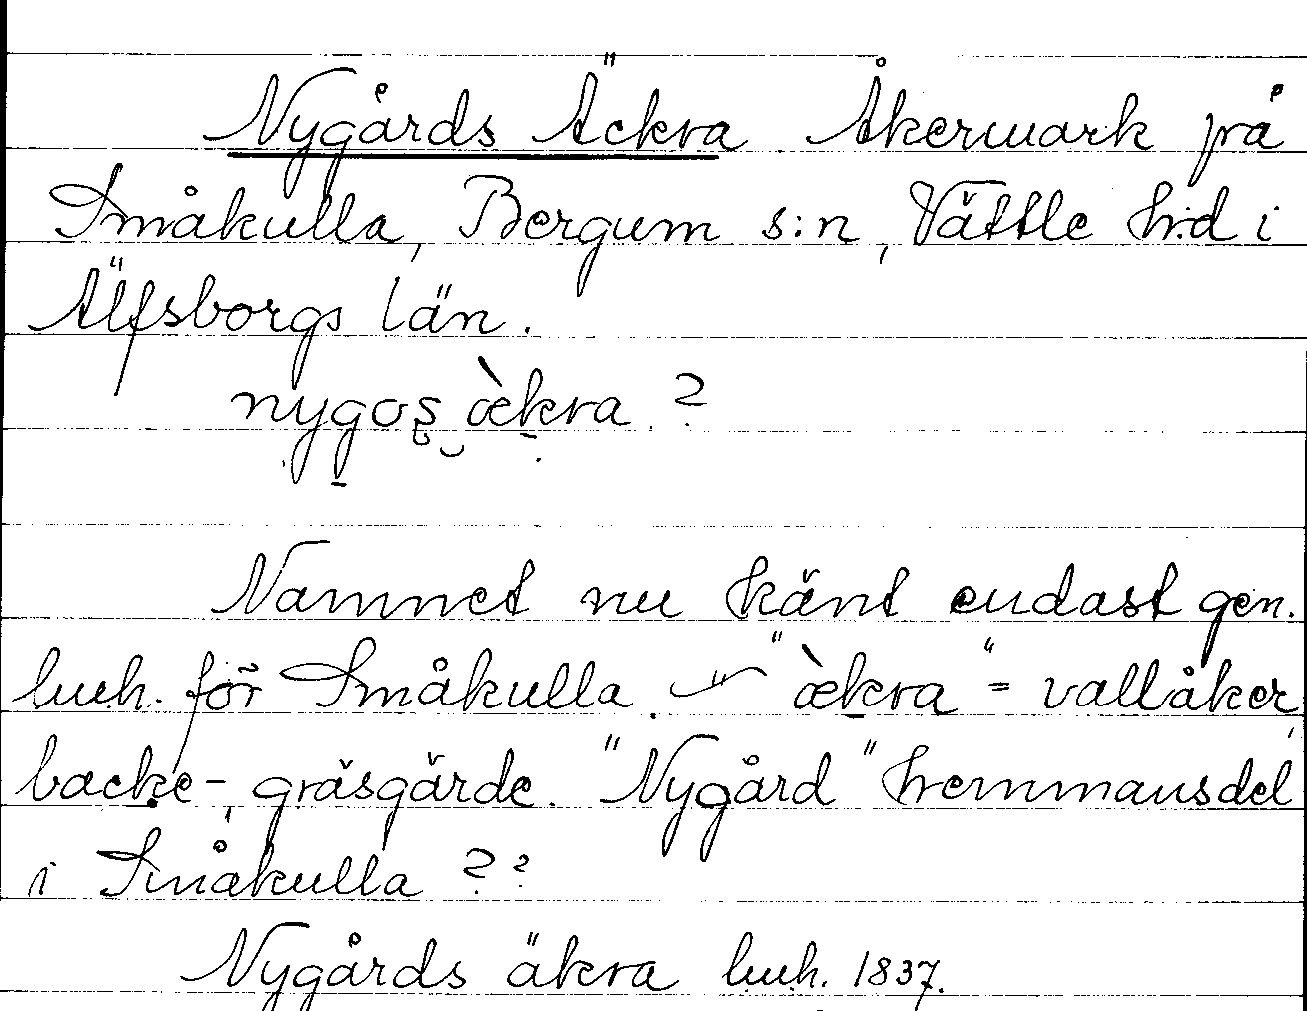 Nygårds Äckra Åkermark på
Småkulla, Bergum s:n, Vättle h:d i
Älfsborgs län.
nygos æ̀kra ?
Namnet nu känt endast gen.
luh. för Småkulla. "æ̀kra" = vallåker,
backe-, gräsgärde. "Nygård" hemmansdel
i Småkulla ??
Nygårds äkra luh. 1837.